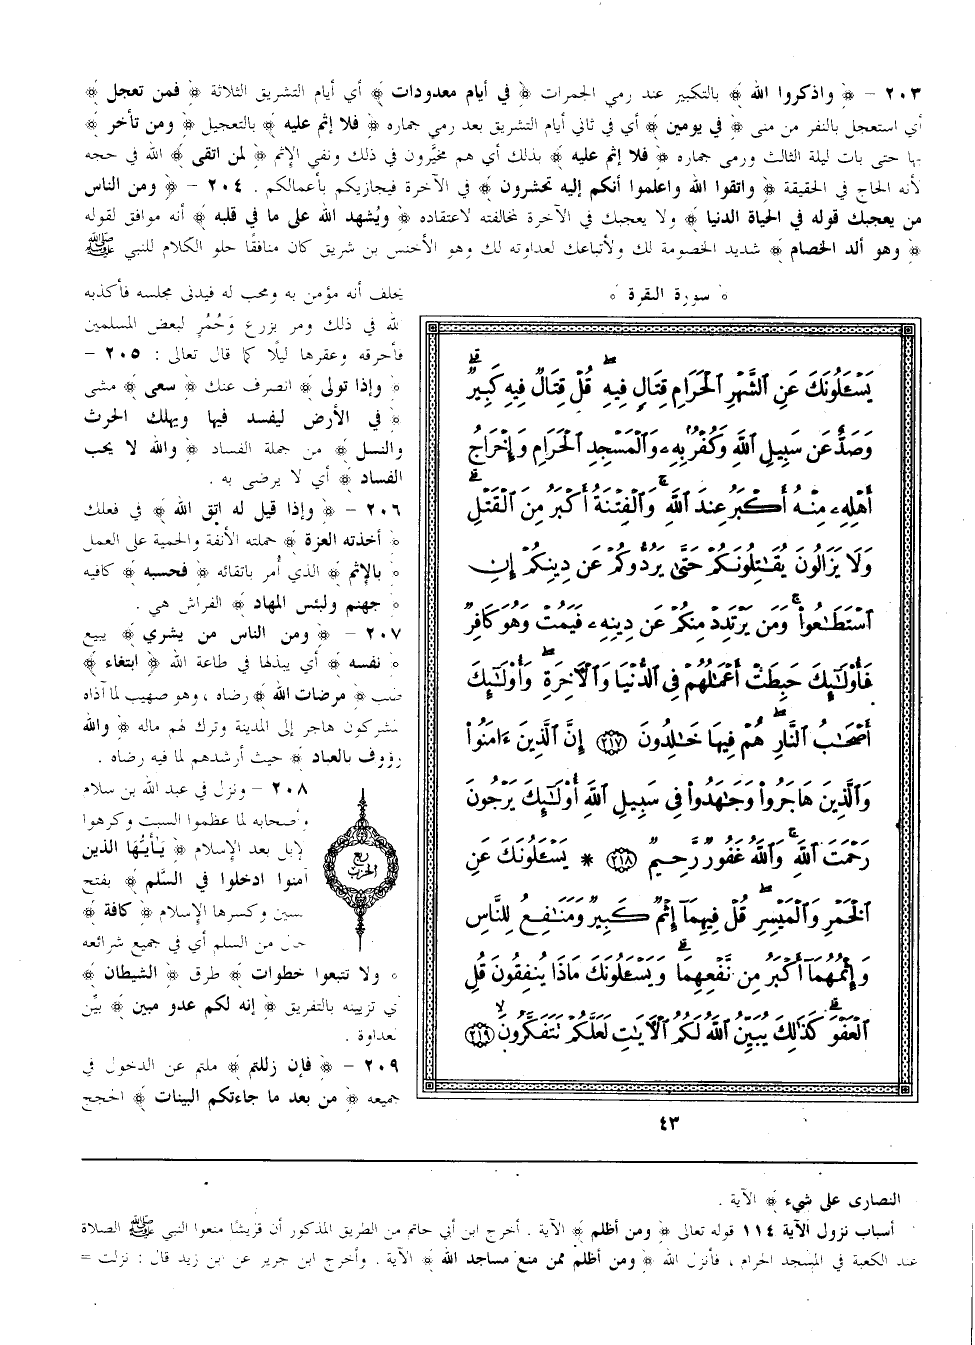 ٢٠٣ - ﴿ واذكروا الله ﴾ بالتكبير عند رمي الجمرات ﴿ في أيام معدودات ﴾ أي أيام التشريق الثلاثة ﴿ فمن تعجل ﴾
أي استعجل بالنفر من منى ﴿ في يومين ﴾ أي في ثاني أيام التشريق بعد رمي جماره ﴿ فلا إثم عليه ﴾ بالتعجيل ﴿ ومن تأخر ﴾
بها حتى بات ليلة الثالث ورمى جماره ﴿ فلا إثم عليه ﴾ بذلك أي هم مخيَّرون في ذلك ونفي الإثم ﴿ لمن اتقى ﴾ الله في حجه
لأنه الحاج في الحقيقة ﴿ واتقوا الله واعلموا أنكم إليه تحشرون ﴾ في الآخرة فيجازيكم بأعمالكم . ٢٠٤ - ﴿ ومن الناس
من يعجبك قوله في الحياة الدنيا ﴾ ولا يعجبك في الآخرة لمخالفته لاعتقاده ﴿ ويُشهد الله على ما في قلبه ﴾ أنه موافق لقوله
﴿ وهو ألد الخصام ﴾ شديد الخصومة لك ولأتباعك لعداوته لك وهو الأخنس بن شريق كان منافقا حلو الكلام للنبي ﷺ
﴿ سورة البقرة ﴾
يَسْـَٔلُونَكَ عَنِ ٱلشَّهْرِ ٱلْحَرَامِ قِتَالٍ فِيهِ ۖ قُلْ قِتَالٌ فِيهِ كَبِيرٌ ۖ
وَصَدٌّ عَن سَبِيلِ ٱللَّهِ وَكُفْرٌۢ بِهِۦ وَٱلْمَسْجِدِ ٱلْحَرَامِ وَإِخْرَاجُ
أَهْلِهِۦ مِنْهُ أَكْبَرُ عِندَ ٱللَّهِ ۚ وَٱلْفِتْنَةُ أَكْبَرُ مِنَ ٱلْقَتْلِ ۗ
وَلَا يَزَالُونَ يُقَٰتِلُونَكُمْ حَتَّىٰ يَرُدُّوكُمْ عَن دِينِكُمْ إِنِ
ٱسْتَطَٰعُوا۟ ۚ وَمَن يَرْتَدِدْ مِنكُمْ عَن دِينِهِۦ فَيَمُتْ وَهُوَ كَافِرٌ
فَأُو۟لَٰٓئِكَ حَبِطَتْ أَعْمَٰلُهُمْ فِى ٱلدُّنْيَا وَٱلْءَاخِرَةِ ۖ وَأُو۟لَٰٓئِكَ
أَصْحَٰبُ ٱلنَّارِ ۖ هُمْ فِيهَا خَٰلِدُونَ ﴿٢١٧﴾ إِنَّ ٱلَّذِينَ ءَامَنُوا۟
وَٱلَّذِينَ هَاجَرُوا۟ وَجَٰهَدُوا۟ فِى سَبِيلِ ٱللَّهِ أُو۟لَٰٓئِكَ يَرْجُونَ
رَحْمَتَ ٱللَّهِ ۚ وَٱللَّهُ غَفُورٌ رَّحِيمٌ ﴿٢١٨﴾ * يَسْـَٔلُونَكَ عَنِ
ٱلْخَمْرِ وَٱلْمَيْسِرِ ۖ قُلْ فِيهِمَآ إِثْمٌ كَبِيرٌ وَمَنَٰفِعُ لِلنَّاسِ
وَإِثْمُهُمَآ أَكْبَرُ مِن نَّفْعِهِمَا ۗ وَيَسْـَٔلُونَكَ مَاذَا يُنفِقُونَ قُلِ
ٱلْعَفْوَ ۗ كَذَٰلِكَ يُبَيِّنُ ٱللَّهُ لَكُمُ ٱلْءَايَٰتِ لَعَلَّكُمْ تَتَفَكَّرُونَ ۙ ﴿٢١٩﴾
٤٣
يحلف أنه مؤمن به ومحب له فيدني مجلسه فأكذبه
الله في ذلك ومر بزرع وَحُمُر لبعض المسلمين
فأحرقه وعقرها ليلًا كما قال تعالى : ٢٠٥ -
﴿ وإذا تولى ﴾ انصرف عنك ﴿ سعى ﴾ مشى
﴿ في الأرض ليفسد فيها ويهلك الحرث
والنسل ﴾ من جملة الفساد ﴿ والله لا يحب
الفساد ﴾ أي لا يرضى به .
٢٠٦ - ﴿ وإذا قيل له اتق الله ﴾ في فعلك
﴿ أخذته العزة ﴾ حملته الأنفة والحمية على العمل
﴿ بالإثم ﴾ الذي أُمر باتقائه ﴿ فحسبه ﴾ كافيه
﴿ جهنم ولبئس المهاد ﴾ الفراش هي .
٢٠٧ - ﴿ ومن الناس من يشري ﴾ يبيع
﴿ نفسه ﴾ أي يبذلها في طاعة الله ﴿ ابتغاء ﴾
طلب ﴿ مرضات الله ﴾ رضاه ، وهو صهيب لما آذاه
المشركون هاجر إلى المدينة وترك لهم ماله ﴿ والله
رؤوف بالعباد ﴾ حيث أرشدهم لما فيه رضاه .
٢٠٨ - ونزل في عبد الله بن سلام
وأصحابه لما عظموا السبت وكرهوا
الإبل بعد الإسلام ﴿ يـأيُّها الذين
آمنوا ادخلوا في السَّلم ﴾ بفتح
السين وكسرها الإسلام ﴿ كافة ﴾
حال من السلم أي في جميع شرائعه
﴿ ولا تتبعوا خطوات ﴾ طرق ﴿ الشيطان ﴾
أي تزيينه بالتفريق ﴿ إنه لكم عدو مبين ﴾ بيِّن
العداوة .
٢٠٩ - ﴿ فإن زللتم ﴾ ملتم عن الدخول في
جميعه ﴿ من بعد ما جاءتكم البينات ﴾ الحجج
ربع
الحزب
النصارى على شيء ﴾ الآية .
أسباب نزول الآية ١١٤ قوله تعالى ﴿ ومن أظلم ﴾ الآية . أخرج ابن أبي حاتم من الطريق المذكور أن قريشًا منعوا النبي ﷺ الصلاة
عند الكعبة في المسجد الحرام ، فأنزل الله ﴿ ومن أظلم ممن منع مساجد الله ﴾ الآية . وأخرج ابن جرير عن ابن زيد قال : نزلت =